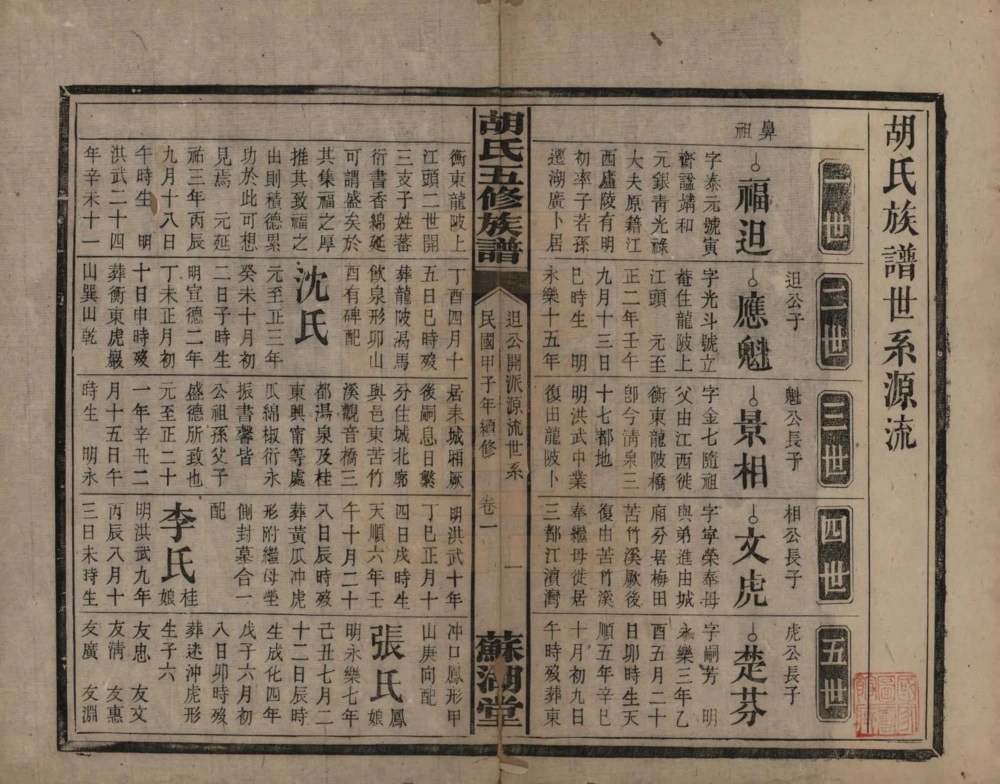 胡氏族譜世系源流
一世
二世
三世
四世
五世
鼻祖
福迴
字泰元號寅
齋謚靖和
元銀青光祿
大夫原籍江
西廬陵有明
初率子若孫
遷湖廣卜居
衡東龍陂上
江頭二世開
三支子姓蕃
衍書香綿延
可謂盛矣於
其集福之厚
推其致福之
出則積德累
功於此可想
見焉 元延
祐三年丙辰
九月十八日
午時生 明
洪武二十四
年辛未十一
迴公子
應魁
字光斗號立
菴住龍陂上
江頭 元至
正二年壬午
九月十三日
巳時生 明
永樂十五年
丁酉四月十
五日巳時歿
葬龍陂渴馬
飲泉形卯山
酉有碑配
沈氏
元至正三年
癸未十月初
二日子時生
明宣德二年
丁未正月初
十日申時歿
葬衡東虎巖
山巽山乾
魁公長子
景相
字金七隨祖
父由江西徙
衡東龍陂橋
卽今清泉三
十七都地
明洪武中業
復田龍陂卜
居耒城廂厥
後嗣息日繁
分住城北廓
與邑東苦竹
溪觀音橋三
都湯泉及桂
東興甯等處
瓜綿椒衍永
振書馨皆
公祖孫父子
盛德所致也
元至正二十
一年辛丑二
月十五日午
時生 明永
相公長子
文虎
字寧榮奉母
與弟進由城
廂分居梅田
苦竹溪厥後
復由苦竹溪
奉繼母徙居
三都江濱灣
明洪武十年
丁巳正月十
四日戌時生
天順六年壬
午十月二十
八日辰時歿
葬黃瓜冲虎
形附繼母塋
側封墓合一
配
李氏 桂娘
明洪武九年
丙辰八月十
三日未時生
虎公長子
楚芬
字嗣芳 明
永樂三年乙
酉五月二十
日卯時生天
順五年辛巳
十月初九日
午時歿葬東
冲口鳳形甲
山庚向配
張氏 鳳娘
明永樂七年
己丑七月二
十二日辰時
生成化四年
戊子六月初
八日卯時歿
葬迷沖虎形
生子六
友忠 友文
友清 友惠
友廣 友淵
胡氏五修族譜
迴公開派源流世系
民國甲子年續修
卷一
一
蘇湖堂